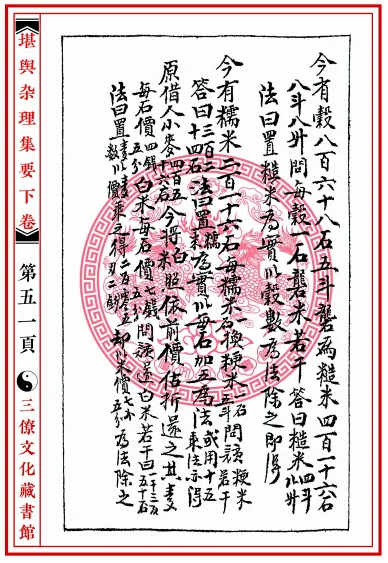 今有穀八百六十八石五斗礱為糙米四百一十六石
八斗八升問每穀一石礱米若干 答曰糙米四斗八升
法曰置糙米為實以穀數為法除之即得
今有糯米二百一十六石每糯米一石換粳米一石五斗問該粳米若干
答曰三百二十四石法曰置糯米為實以每石加五為法或用十五乘法亦得
原借人小麥四百五十六石今將白米照依前價估折還之其麥
每石價四錢五分白米每石價七錢五分問該還白米若干曰
法曰置麥數以麥價乘之得二錢却以米價七錢五分為法除之
《堪輿杂理集要下卷》
第五一頁
三僚文化藏書館